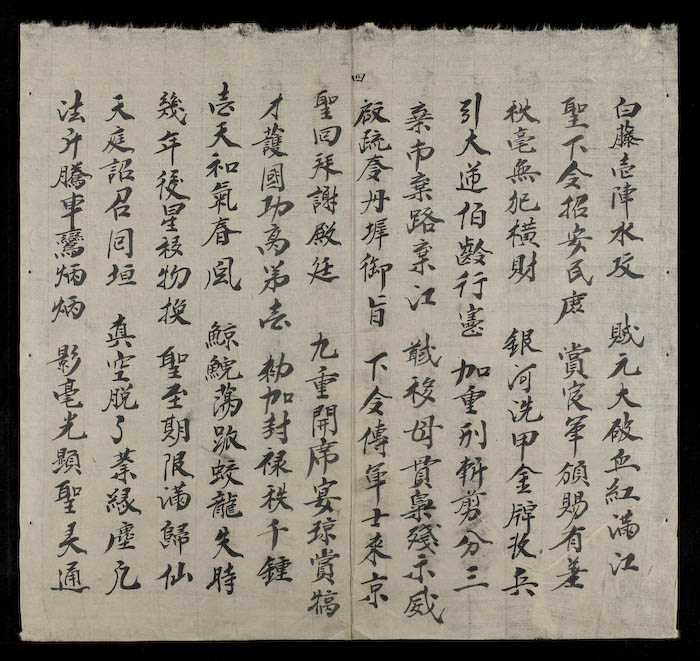 四
白藤壱陣水攻 賊元大破血紅滿江
聖下令招安民庶 賞官軍頒賜有差
秋毫無犯橫財 銀河洗甲金牌收兵
引大逆伯齡行憲 加重刑斬剪分三
棄市棄路棄江 移母貫梟殘示威
啟疏奏丹墀御旨 下令傳軍士来京
聖回拜謝殿廷 九重開席宴瓊賞犒
才護國功高第壱 勅加封禄秩千鍾
壱天和氣春風 鯨鯢蕩跡蛟龍失時
幾年後星移物換 聖至期限滿歸仙
天庭詔召回垣 真空脱了業縁塵凡
法升騰車鸞炳炳 影毫光顯聖灵通